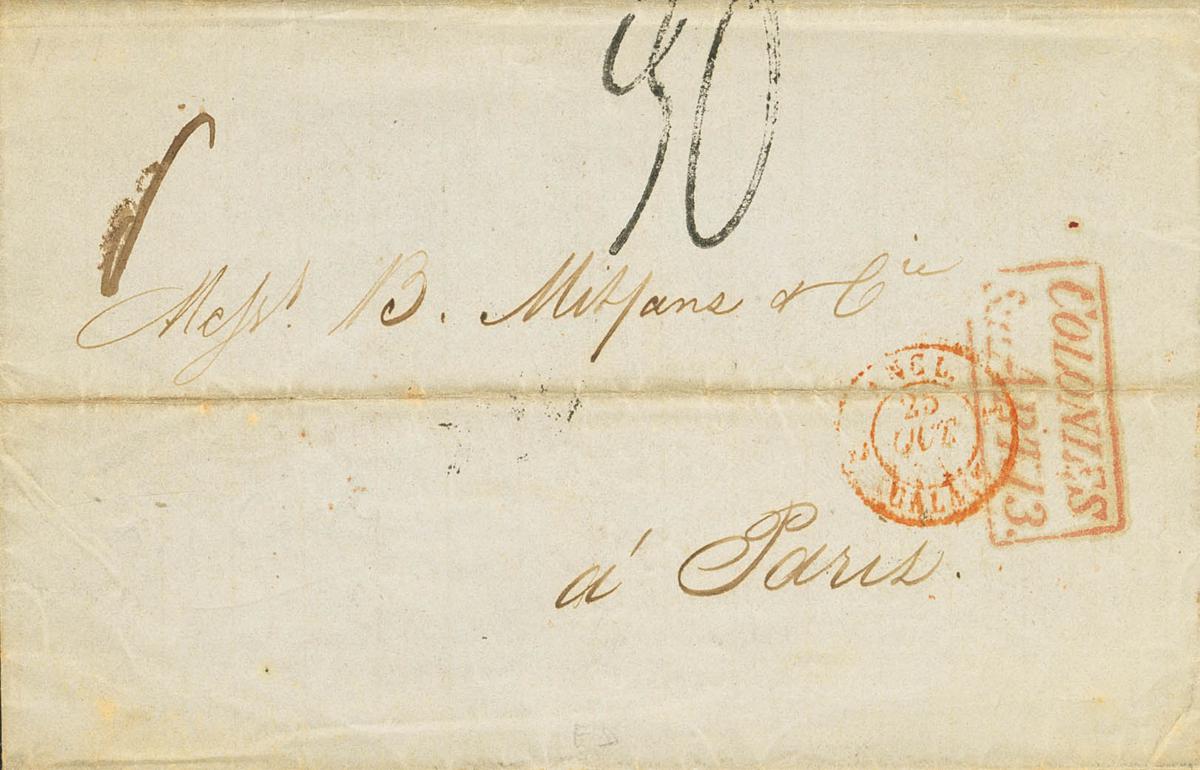 30
Mess.rs B. Mitjans & Cie
COLONIES
&c. ART. 13.
ANGL.
25
OCT
CALAIS
á Paris.